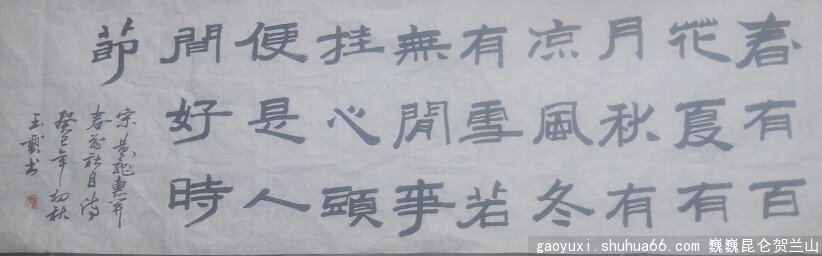 春有百
花夏有
月秋有
凉風冬
有雪若
無閒事
挂心頭
便是人
間好時
節
宋黄龙惠开
春花秋月诗
癸巳年初秋
书
gaoyuxi.shuhua66.com 巍巍昆仑贺兰山